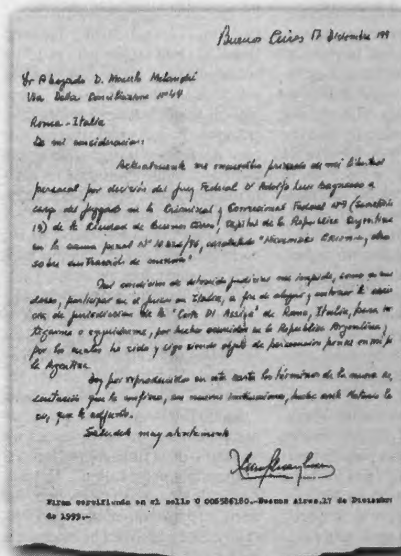 Buenos Aires 17 Diciembre 199
Sr Abogado D. Marcelo
Via Della Conciliazione nº 44
Roma - Italia
De mi consideración:
Actualmente me encuentro privado de mi libertad
personal por decisión del Juez Federal Dr Adolfo Luis Bagnasco a
cargo del Juzgado en lo Criminal y Correccional Federal Nº 7 (Secretaría
) de la Ciudad de Buenos Aires, Capital de la República Argentina
en la causa penal Nº
sobre sustracción de menores"
condición de detenido judicial me impide, como es mi
deseo, participar en el juicio en Italia, a fin de alegar y
de jurisdicción de la "Corte Di Assise" de Roma, Italia, para
juzgarme o, por hechos ocurridos en la República Argentina,
por los cuales he sido y sigo siendo objeto de
la Argentina.
Doy por reproducidos en esta carta los términos de la
que le, sus nuevas instrucciones, hecha ante Notario
que le adjunto.
Saludole muy atentamente
Firma certificada en el sello O 006586180.-Buenos Aires,17 de Diciembre
de 1999.-